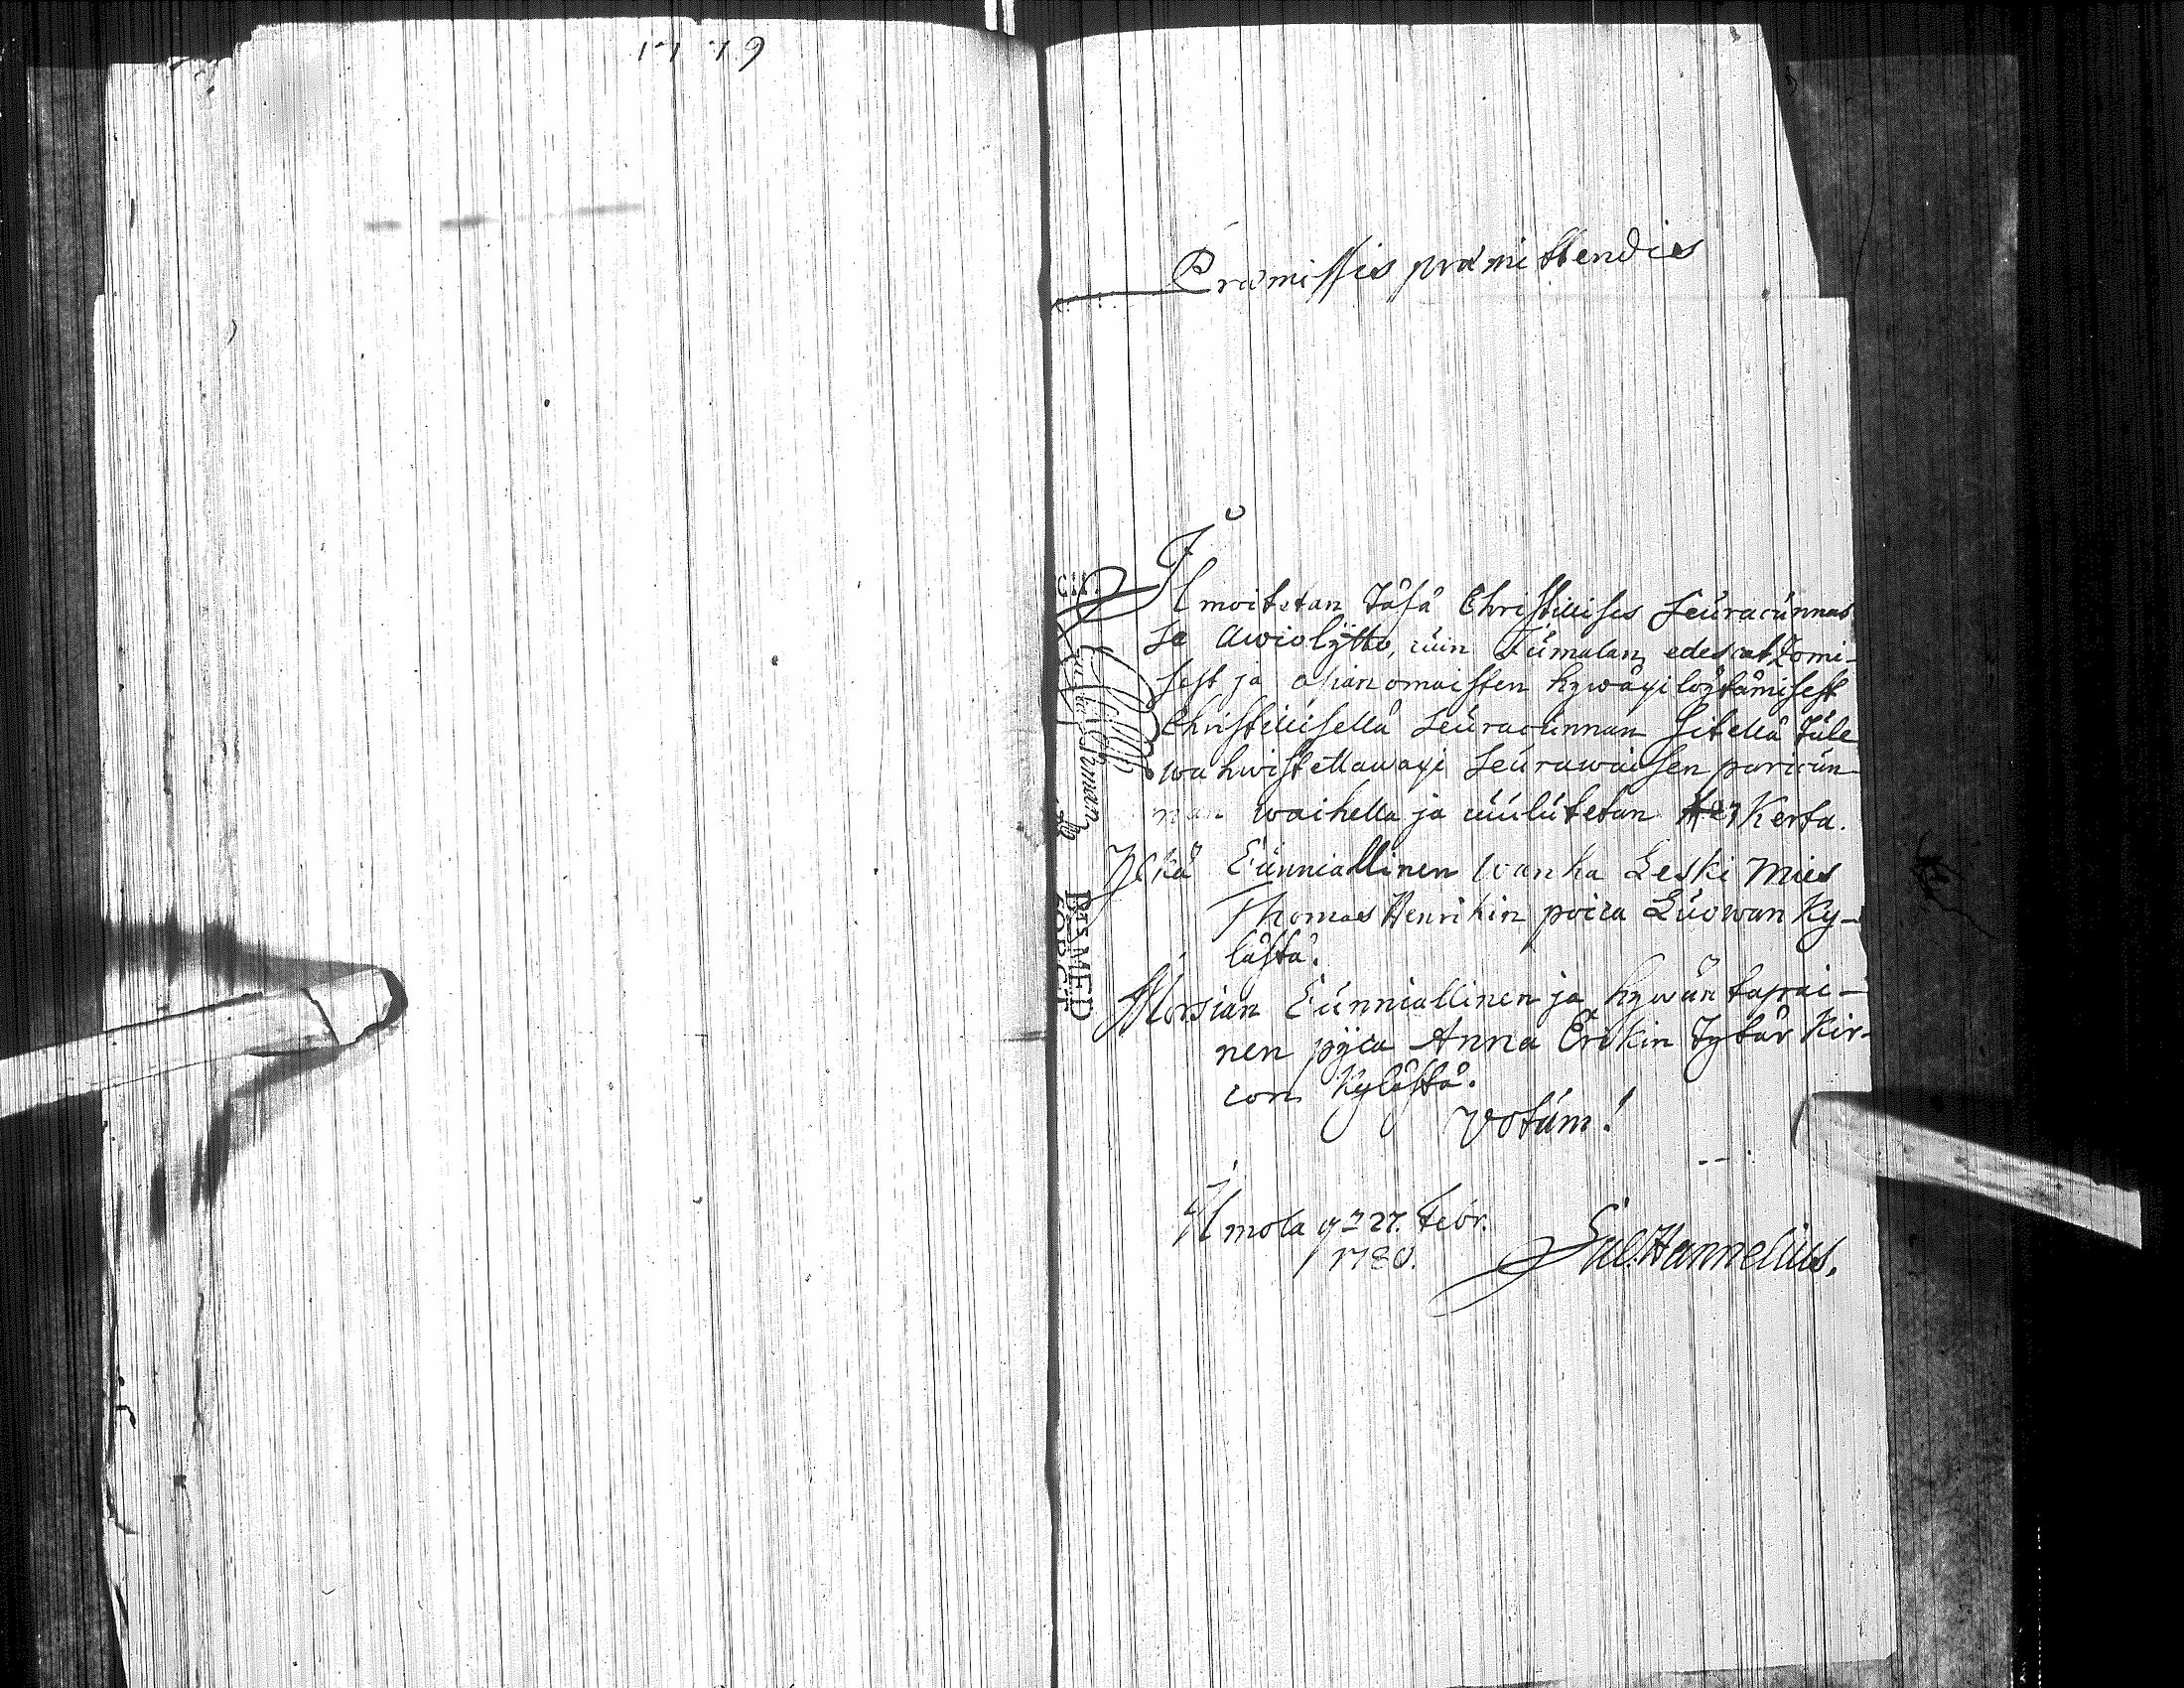 1779
Præmissis præmittendis
Ilmoitetan Täsä Christillises Seuracunnas
se Awiolijtto, cuin Jumalan edescatzomi-
sest ja asianomaisten hywäxi löytämisest
Christillisellä Seuracunnan Sitellä tule
wahwistettawaxi Seurawaisen paricun-
nan waihella ja cuulutetan Kerta.
Ylkä Cunniallinen wanha Leski Mies
Thomas Henrikin poica Luowan Ky-
lästä.
Morsian Cunniallinen ja hywän tapai-
nen pijca Anna Erikin Tytär Kir-
con Kylästä.
Votum!
Ilmola 27. Febr.
1780.
Hannelius.